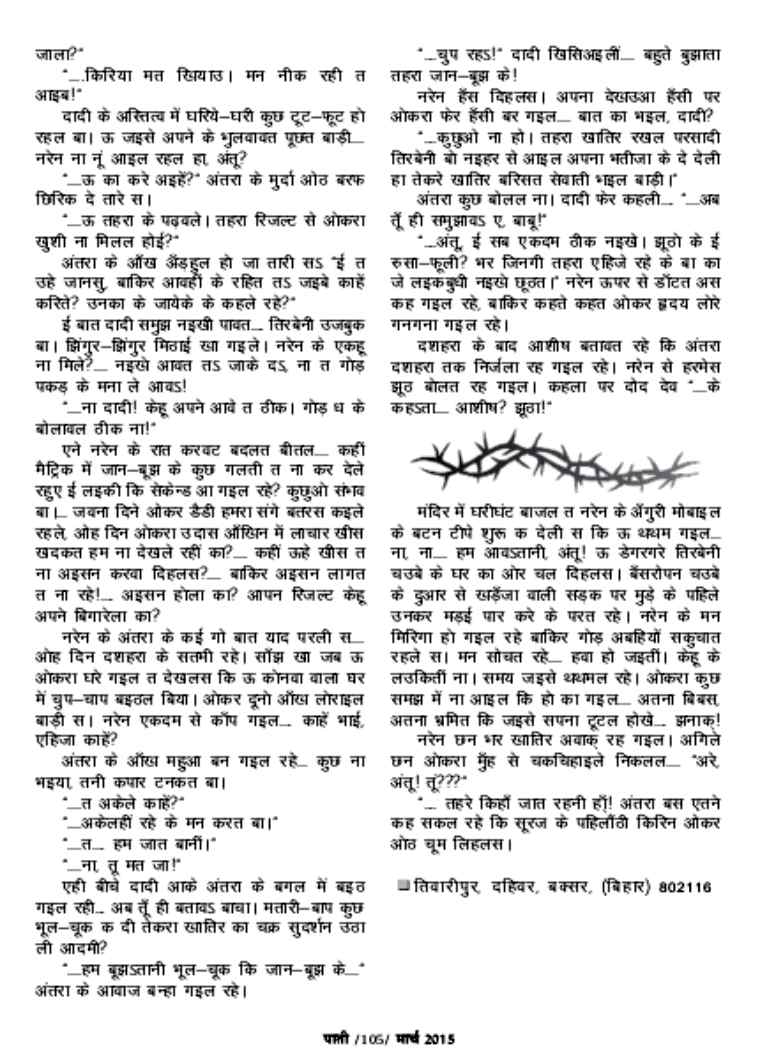 जाला?"
"....किरिया मत खियाउ। मन नीक रही त
आइब!"
दादी के अस्तित्व में घरिये–घरी कुछ टूट–फूट हो
रहल बा। ऊ जइसे अपने के भुलवावत पूछत बाड़ी....
नरेन ना नूं आइल रहल हा, अंतू?
"....ऊ का करे अइहें?" अंतरा के मुर्दा ओठ बरफ
छिरिक दे तारे स।
"....ऊ तहरा के पढ़वले। तहरा रिजल्ट से ओकरा
खुशी ना मिलल होई?"
अंतरा के आँख अँड़हुल हो जा तारी सऽ "ई त
उहे जानसु, बाकिर आवहीं के रहित तऽ जइबे काहें
करिते? उनका के जायेके के कहले रहे?"
ई बात दादी समुझ नइखी पावत.... तिरबेनी उजबुक
बा। झिंगुर–झिंगुर मिठाई खा गइले। नरेन के एकहू
ना मिले?.... नइखे आवत तऽ जाके दऽ, ना त गोड़
पकड़ के मना ले आवऽ!
"....ना दादी! केहू अपने आवे त ठीक। गोड़ ध के
बोलावल ठीक ना!"
एने नरेन के रात करवट बदलत बीतल.... कहीं
मैट्रिक में जान–बूझ के कुछ गलती त ना कर देले
रहुए ई लइकी कि सेकेन्ड आ गइल रहे? कुछुओ संभव
बा।.... जवना दिने ओकर डैडी हमरा संगे बतरस कइले
रहले, ओह दिन ओकरा उदास आँखिन में लाचार खीस
खदकत हम ना देखले रहीं का?.... कहीं ऊहे खीस त
ना अइसन करवा दिहलस?.... बाकिर अइसन लागत
त ना रहे!.... अइसन होला का? आपन रिजल्ट केहू
अपने बिगारेला का?
नरेन के अंतरा के कई गो बात याद परली स....
ओह दिन दशहरा के सतमी रहे। साँझ खा जब ऊ
ओकरा घरे गइल त देखलस कि ऊ कोनवा वाला घर
में चुप–चाप बइठल बिया। ओकर दूनो आँख लोराइल
बाड़ी स। नरेन एकदम से काँप गइल.... काहें भाई,
एहिजा काहें?
अंतरा के आँख महुआ बन गइल रहे... कुछ ना
भइया, तनी कपार टनकत बा।
"....त अकेले काहें?"
"....अकेलहीं रहे के मन करत बा।"
"....त.... हम जात बानीं।"
"....ना, तू मत जा!"
एही बीचे दादी आके अंतरा के बगल में बइठ
गइल रही... अब तूँ ही बतावऽ बाचा। मतारी–बाप कुछ
भूल–चूक क दी तेकरा खातिर का चक्र सुदर्शन उठा
ली आदमी?
"....हम बूझऽतानी भूल–चूक कि जान–बूझ के...."
अंतरा के आवाज बन्हा गइल रहे।
"....चुप रहऽ!" दादी खिसिअइलीं.... बहुते बुझाता
तहरा जान–बूझ के!
नरेन हँस दिहलस। अपना देखउआ हँसी पर
ओकरा फेर हँसी बर गइल.... बात का भइल, दादी?
"....कुछुओ ना हो। तहरा खातिर रखल परसादी
तिरबेनी बो नइहर से आइल अपना भतीजा के दे देली
हा तेकरे खातिर बरिसत सेवाती भइल बाड़ी।"
अंतरा कुछ बोलल ना। दादी फेर कहली.... "....अब
तूँ ही समुझावऽ ए, बाबू!"
"....अंतू, ई सब एकदम ठीक नइखे। झूठो के ई
रुसा–फूली? भर जिनगी तहरा एहिजे रहे के बा का
जे लइकबुधी नइखे छूठत।" नरेन ऊपर से डाँटत अस
कह गइल रहे, बाकिर कहते कहत ओकर हृदय लोरे
गनगना गइल रहे।
दशहरा के बाद आशीष बतावत रहे कि अंतरा
दशहरा तक निर्जला रह गइल रहे। नरेन से हरमेस
झूठ बोलत रह गइल। कहला पर दोद देव "....के
कहऽता.... आशीष? झूठा!"
मंदिर में घरीघंट बाजल त नरेन के अँगुरी मोबाइल
के बटन टीपे शुरू क देली स कि ऊ थथम गइल....
ना, ना.... हम आवऽतानी, अंतू! ऊ डेगरगरे तिरबेनी
चउबे के घर का ओर चल दिहलस। बँसरोपन चउबे
के दुआर से खड़ेंजा वाली सड़क पर मुड़े के पहिले
उनकर मड़ई पार करे के परत रहे। नरेन के मन
मिरिगा हो गइल रहे बाकिर गोड़ अबहियों सकुचात
रहले स। मन सोचत रहे.... हवा हो जइतीं। केहू के
लउकितीं ना। समय जइसे थथमल रहे। ओकरा कुछ
समझ में ना आइल कि हो का गइल.... अतना बिबस,
अतना भ्रमित कि जइसे सपना टूटल होखे.... झनाक्!
नरेन छन भर खातिर अवाक् रह गइल। अगिले
छन ओकरा मुँह से चकचिहाइले निकलल.... "अरे,
अंतू! तूं???"
".... तहरे किहाँ जात रहनी हाँ! अंतरा बस एतने
कह सकल रहे कि सूरज के पहिलौंठी किरिन ओकर
ओठ चूम लिहलस।
तिवारीपुर, दहिवर, बक्सर, (बिहार) 802116
पाती /105/ मार्च 2015